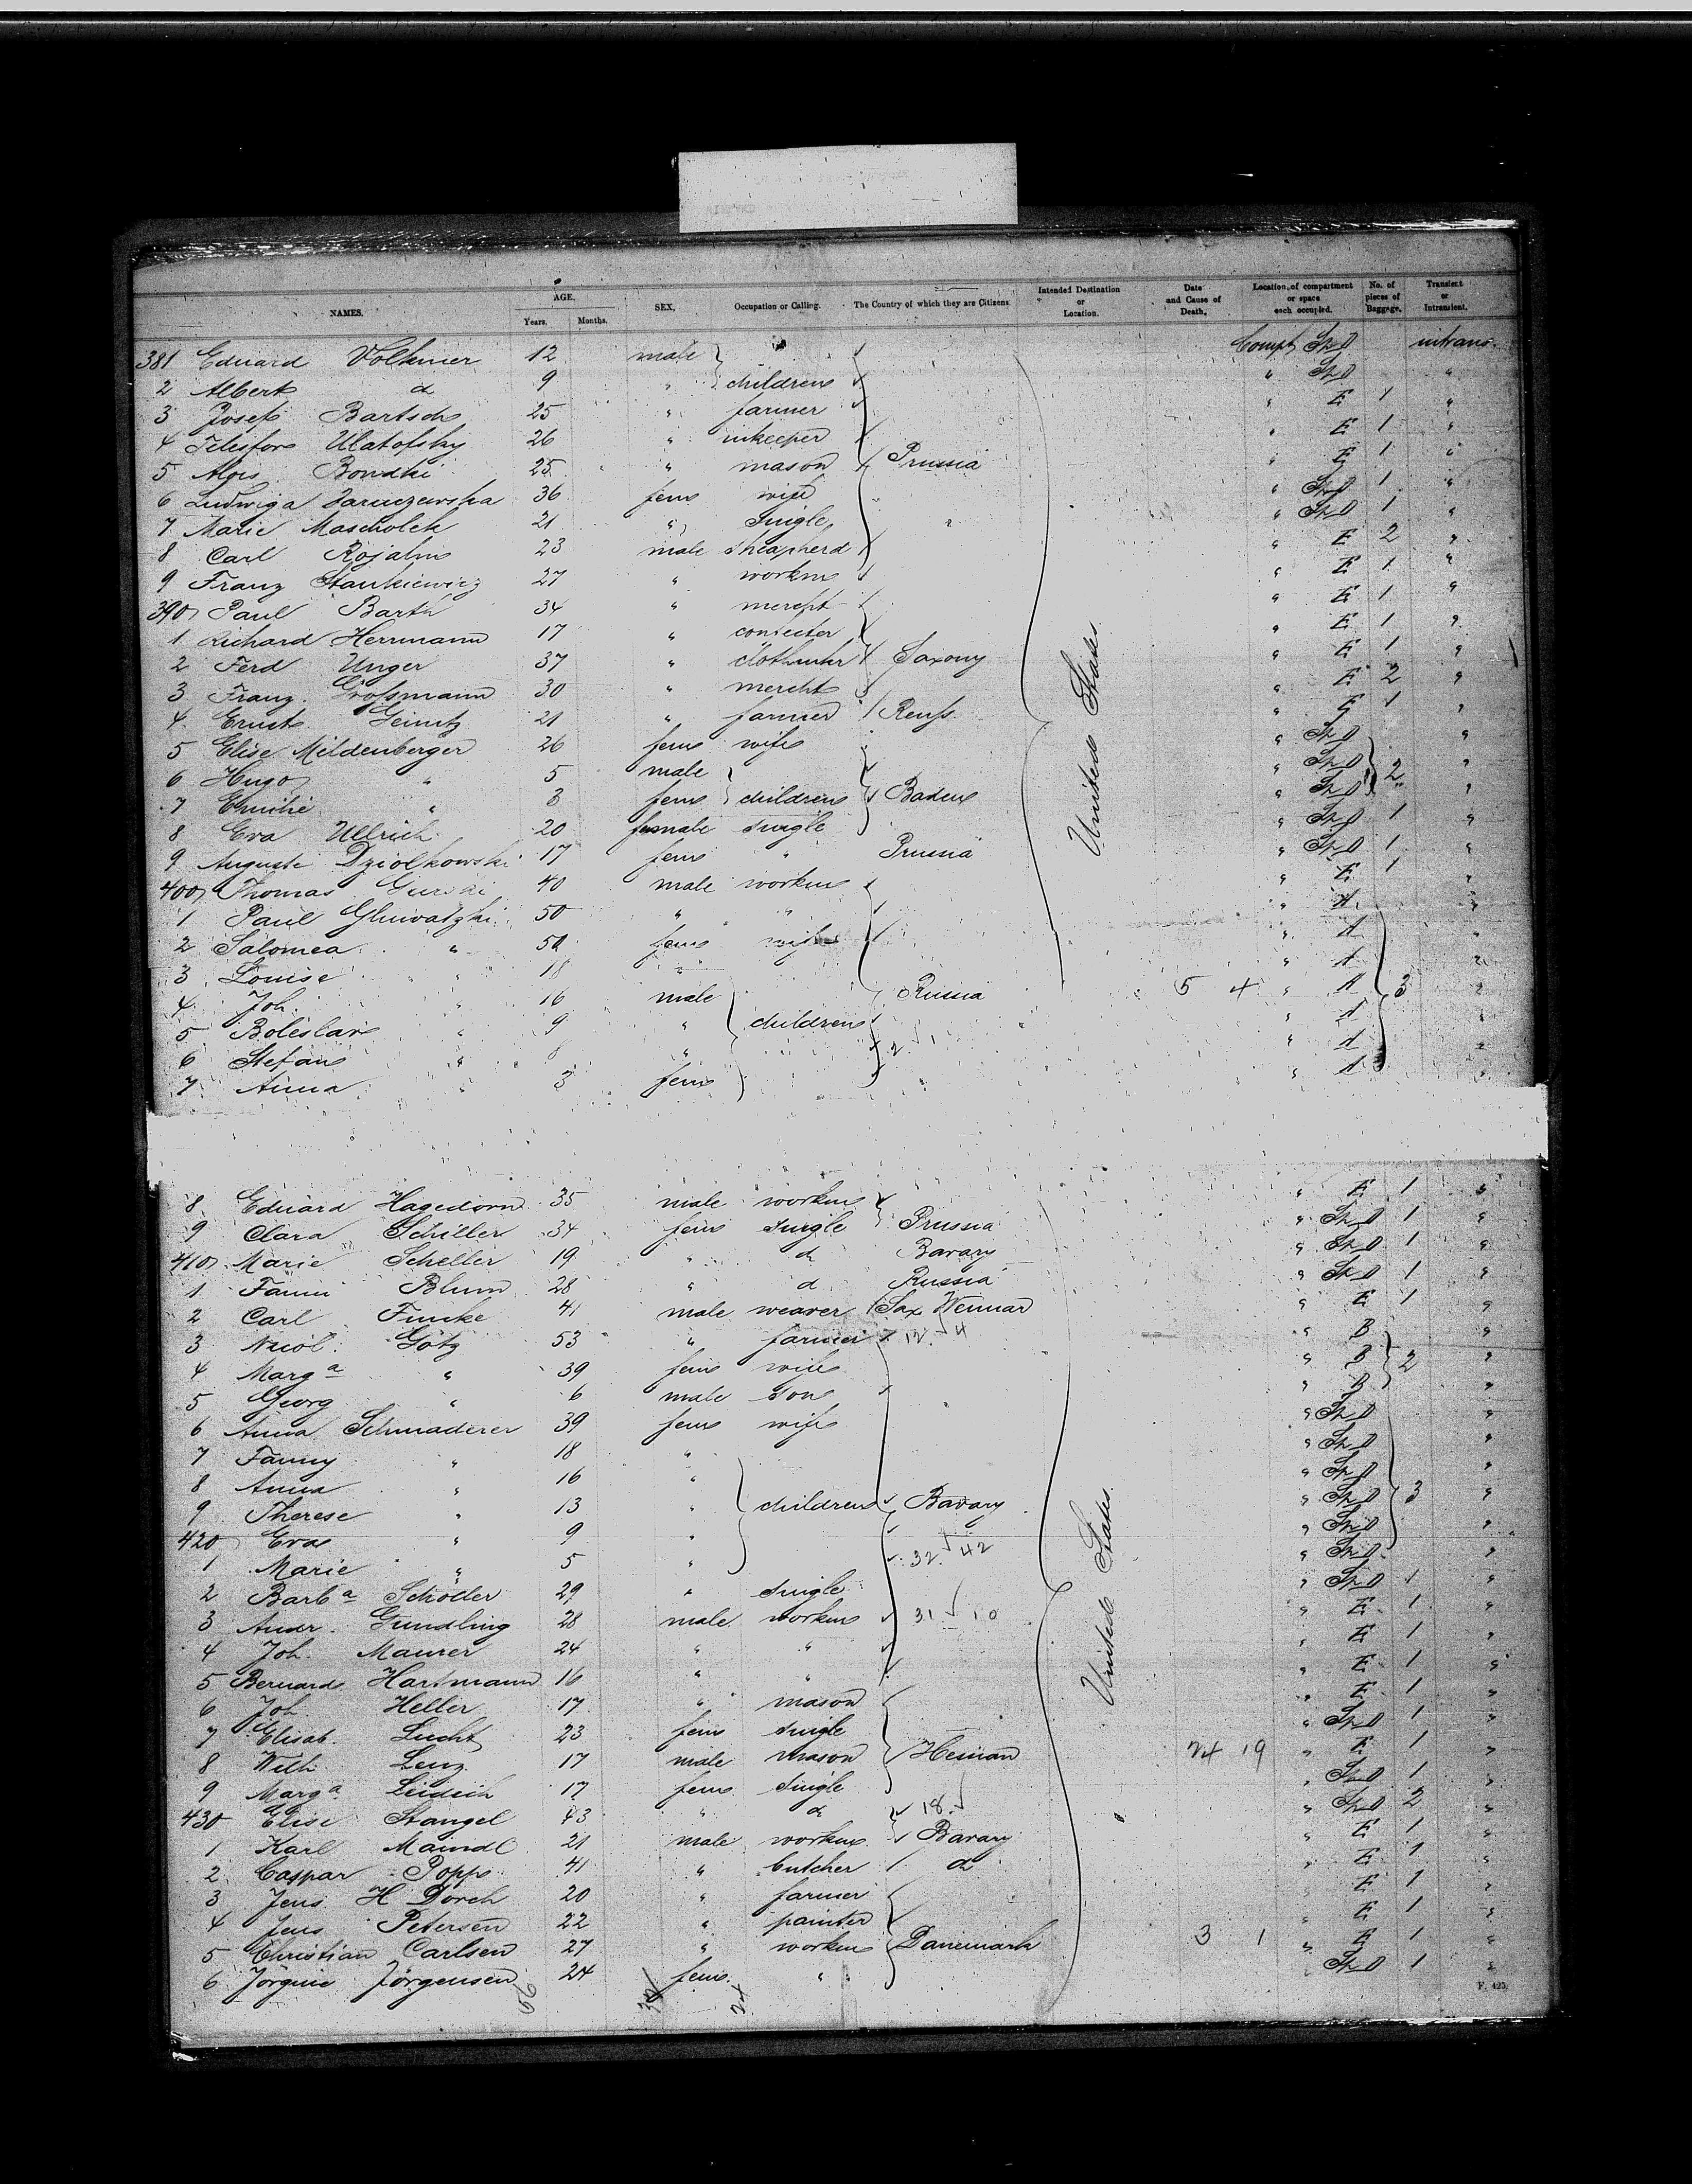 NAMES. AGE. Years. Months. SEX. Occupation or Calling. The Country of which they are Citizens. Intended Destination or Location. Date and Cause of Death. Location of compartment or space each occupied. No. of pieces of Baggage. Transient or Intransient.
381 Eduard Volkmer 12 male Compt St D intrans.
2 Albert d 9 " children " St D "
3 Josef Bartsch 25 " farmer " E 1 "
4 Telesfor Ulatofsky 26 " inkeeper " E 1 "
5 Alois Bondki 25 " mason Prussia " E 1 "
6 Ludwiga 36 fem wife " St D 1 "
7 Marie Mascholek 21 " single " " St D 1 "
8 Carl Rojahn 23 male sheapherd " E 2 "
9 Franz Stankiewicz 27 " workm " E 1 "
390 Paul Barth 34 " mercht " E 1 "
1 Richard Herrmann 17 " " E 1 "
2 Ferd Unger 37 " Saxony " E 1 "
3 Franz Grossmann 30 " mercht " E 2 "
4 Ernst Geinitz 21 " farmer Reuss " E 1 "
5 Elise Mildenberger 26 fem wife " St D "
6 Hugo " 5 male " St D 2 "
7 Emilie " 3 fem children Baden " St D "
8 Eva Ullrich 20 female single " St D 1 "
9 Auguste Dziolkowski 17 fem " Prussia " St D 1 "
400 Thomas Gurski 40 male workm " E 1 "
1 Paul Gluwatzki 50 " " " A "
2 Salomea " 50 fem wife " A "
3 Louise " 18 " " A "
4 Joh. " 16 male Russia 5 4 " A 3 "
5 Boleslav " 9 " children " A "
6 Stefan " 8 " 2 1 " A "
7 Anna " 3 fem " A "
United States
8 Eduard Hagedorn 35 male workm " E 1 "
9 Clara Schiller 34 fem single Prussia " St D 1 "
410 Marie Scheller 19 " d Bavary " St D 1 "
1 Fanni Blum 28 " d Russia " St D 1 "
2 Carl Funke 41 male weaver Sax Weimar " E 1 "
3 Nicol. Götz 53 " farmer 12 4 " B "
4 Marga " 39 fem wife " B 2 "
5 Georg " 6 male son " B "
6 Anna Schmaderer 39 fem wife " St D "
7 Fanny " 18 " " St D "
8 Anna " 16 " " St D "
9 Therese " 13 " children Bavary " St D 3 "
420 Eva " 9 " " St D "
1 Marie " 5 " 32 42 " St D "
2 Barba Scholler 29 " single " St D 1 "
3 Andr. Gundling 28 male workm 31 10 " E 1 "
4 Joh. Maurer 24 " " " E 1 "
5 Bernard Hartmann 16 " " " E 1 "
6 Joh. Heller 17 " mason " E 1 "
7 Elisab. Lucht 23 fem single " St D 1 "
8 Wilh. Lenz 17 male mason 24 19 " E 1 "
9 Marga Leidich 17 fem single " St D 1 "
430 Elise Stangel 43 " d 18 " St D 2 "
1 Karl Maindl 21 male workm Bavary " E 1 "
2 Caspar Popp 41 " butcher d " E 1 "
3 Jens H Dorch 20 " farmer " E 1 "
4 Jens Petersen 22 " painter " E 1 "
5 Christian Carlsen 27 " workm Danemark 3 1 " E 1 "
6 Jorgine Jörgensen 24 fem " St D 1 "
United States.
56 24
F. 425.